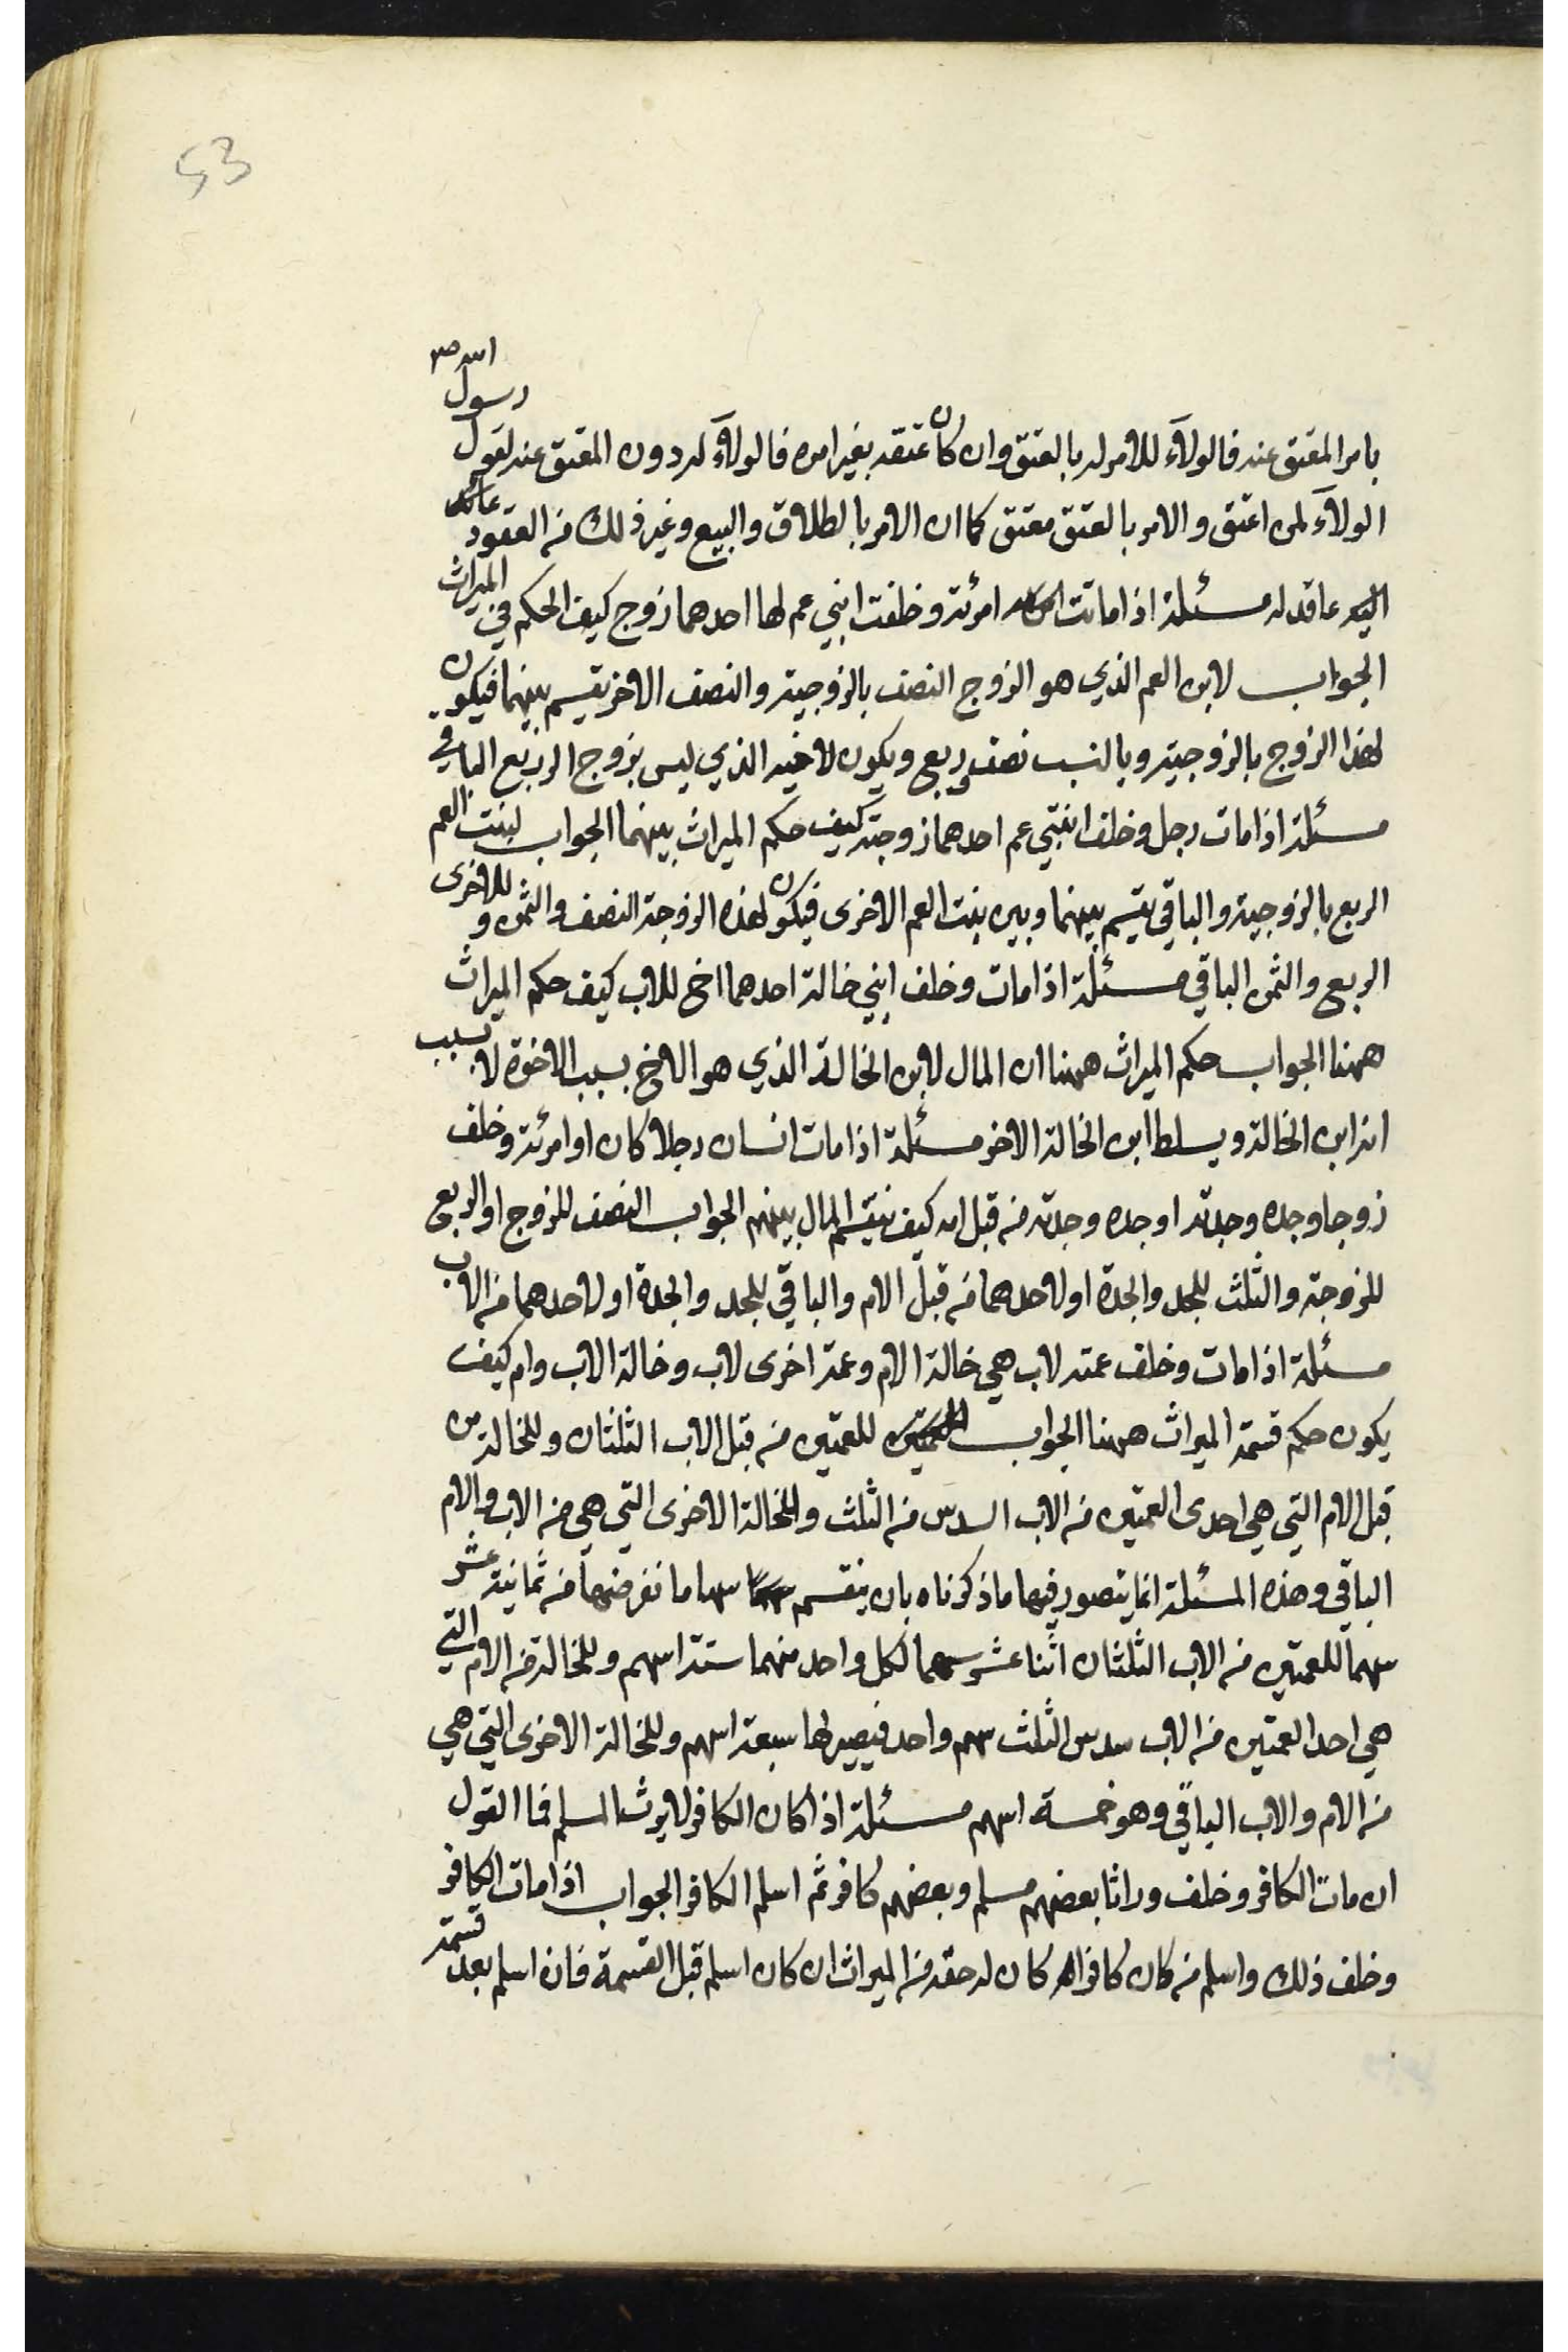 53
بامر المعتق عنه فالولآء للامر له بالعتق وان كان عتقه بغير امره فالولآء له دون المعتق عنه لقول رسول الله ص
الولآء لمن اعتق والامر بالعتق معتق كما ان الامر بالطلاق والبيع وغير ذلك من العقود عائد
اليه عاقد له مسئلة اذا ماتت امرئة وخلفت ابني عم لها احدهما زوج كيف الحكم في الميراث
الجواب لابن العم الذي هو الزوج النصف بالزوجية والنصف الاخر يقسم بينهما فيكون
لهذا الزوج بالزوجية وبالنسب نصف وربع ويكون لاخيه الذي ليس بزوج الربع الباقي
مسئلة اذا مات رجل وخلف ابنتي عم احدهما زوجته كيف حكم الميراث بينهما الجواب لبنت العم
الربع بالزوجية والباقي يقسم بينهما وبين بنت العم الاخرى فيكون لهذه الزوجة النصف والثمن و للاخرى
الربع والثمن الباقي مسئلة اذا مات وخلف ابني خالة احدهما اخ للاب كيف حكم الميراث
ههنا الجواب حكم الميراث ههنا ان المال لابن الخالة الذي هو الاخ بسبب الاخوة لا بسبب
انه ابن الخالة ويسلط ابن الخالة الاخر مسئلة اذا مات انسان رجلا كان او امرئة وخلف
زوجا وجده وجدته او جده وجدته من قبل امه كيف يقسم المال بينهم الجواب النصف للزوج او الربع
للزوجة والثلث للجد والجدة او لاحدهما من قبل الام والباقي للجد والجدة او لاحدهما من الاب
مسئلة اذا مات وخلف عمته لاب هي خالة الام وعمة اخرى لاب وخالة الاب وام كيف
يكون حكم قسمة الميراث ههنا الجواب للعمتين من قبل الاب الثلثان وللخالة من
قبل الام التي هي احدى العمتين من الاب السدس من الثلث وللخالة الاخرى التي هي من الاب والام
الباقي وهذه المسئلة انما يتصور فيها ما ذكرناه بان ينقسم سهاما نفرضها من ثمانية عشر
سهما للعمتين من الاب الثلثان اثنا عشر سهما لكل واحد منهما ستة اسهم وللخالة من الام التي
هي احد العمتين من الاب سدس الثلث سهم واحد فيصير لها سبعة اسهم وللخالة الاخرى التي هي
من الام والاب الباقي وهو خمسة اسهم مسئلة اذا كان الكافر لا يرث المسلم فما القول
ان مات الكافر وخلف وراثا بعضهم مسلم وبعضهم كافر ثم اسلم الكافر الجواب اذا مات الكافر
وخلف ذلك واسلم من كان كافرا كان له حقه من الميراث ان كان اسلم قبل القسمة فان اسلم بعد قسمة